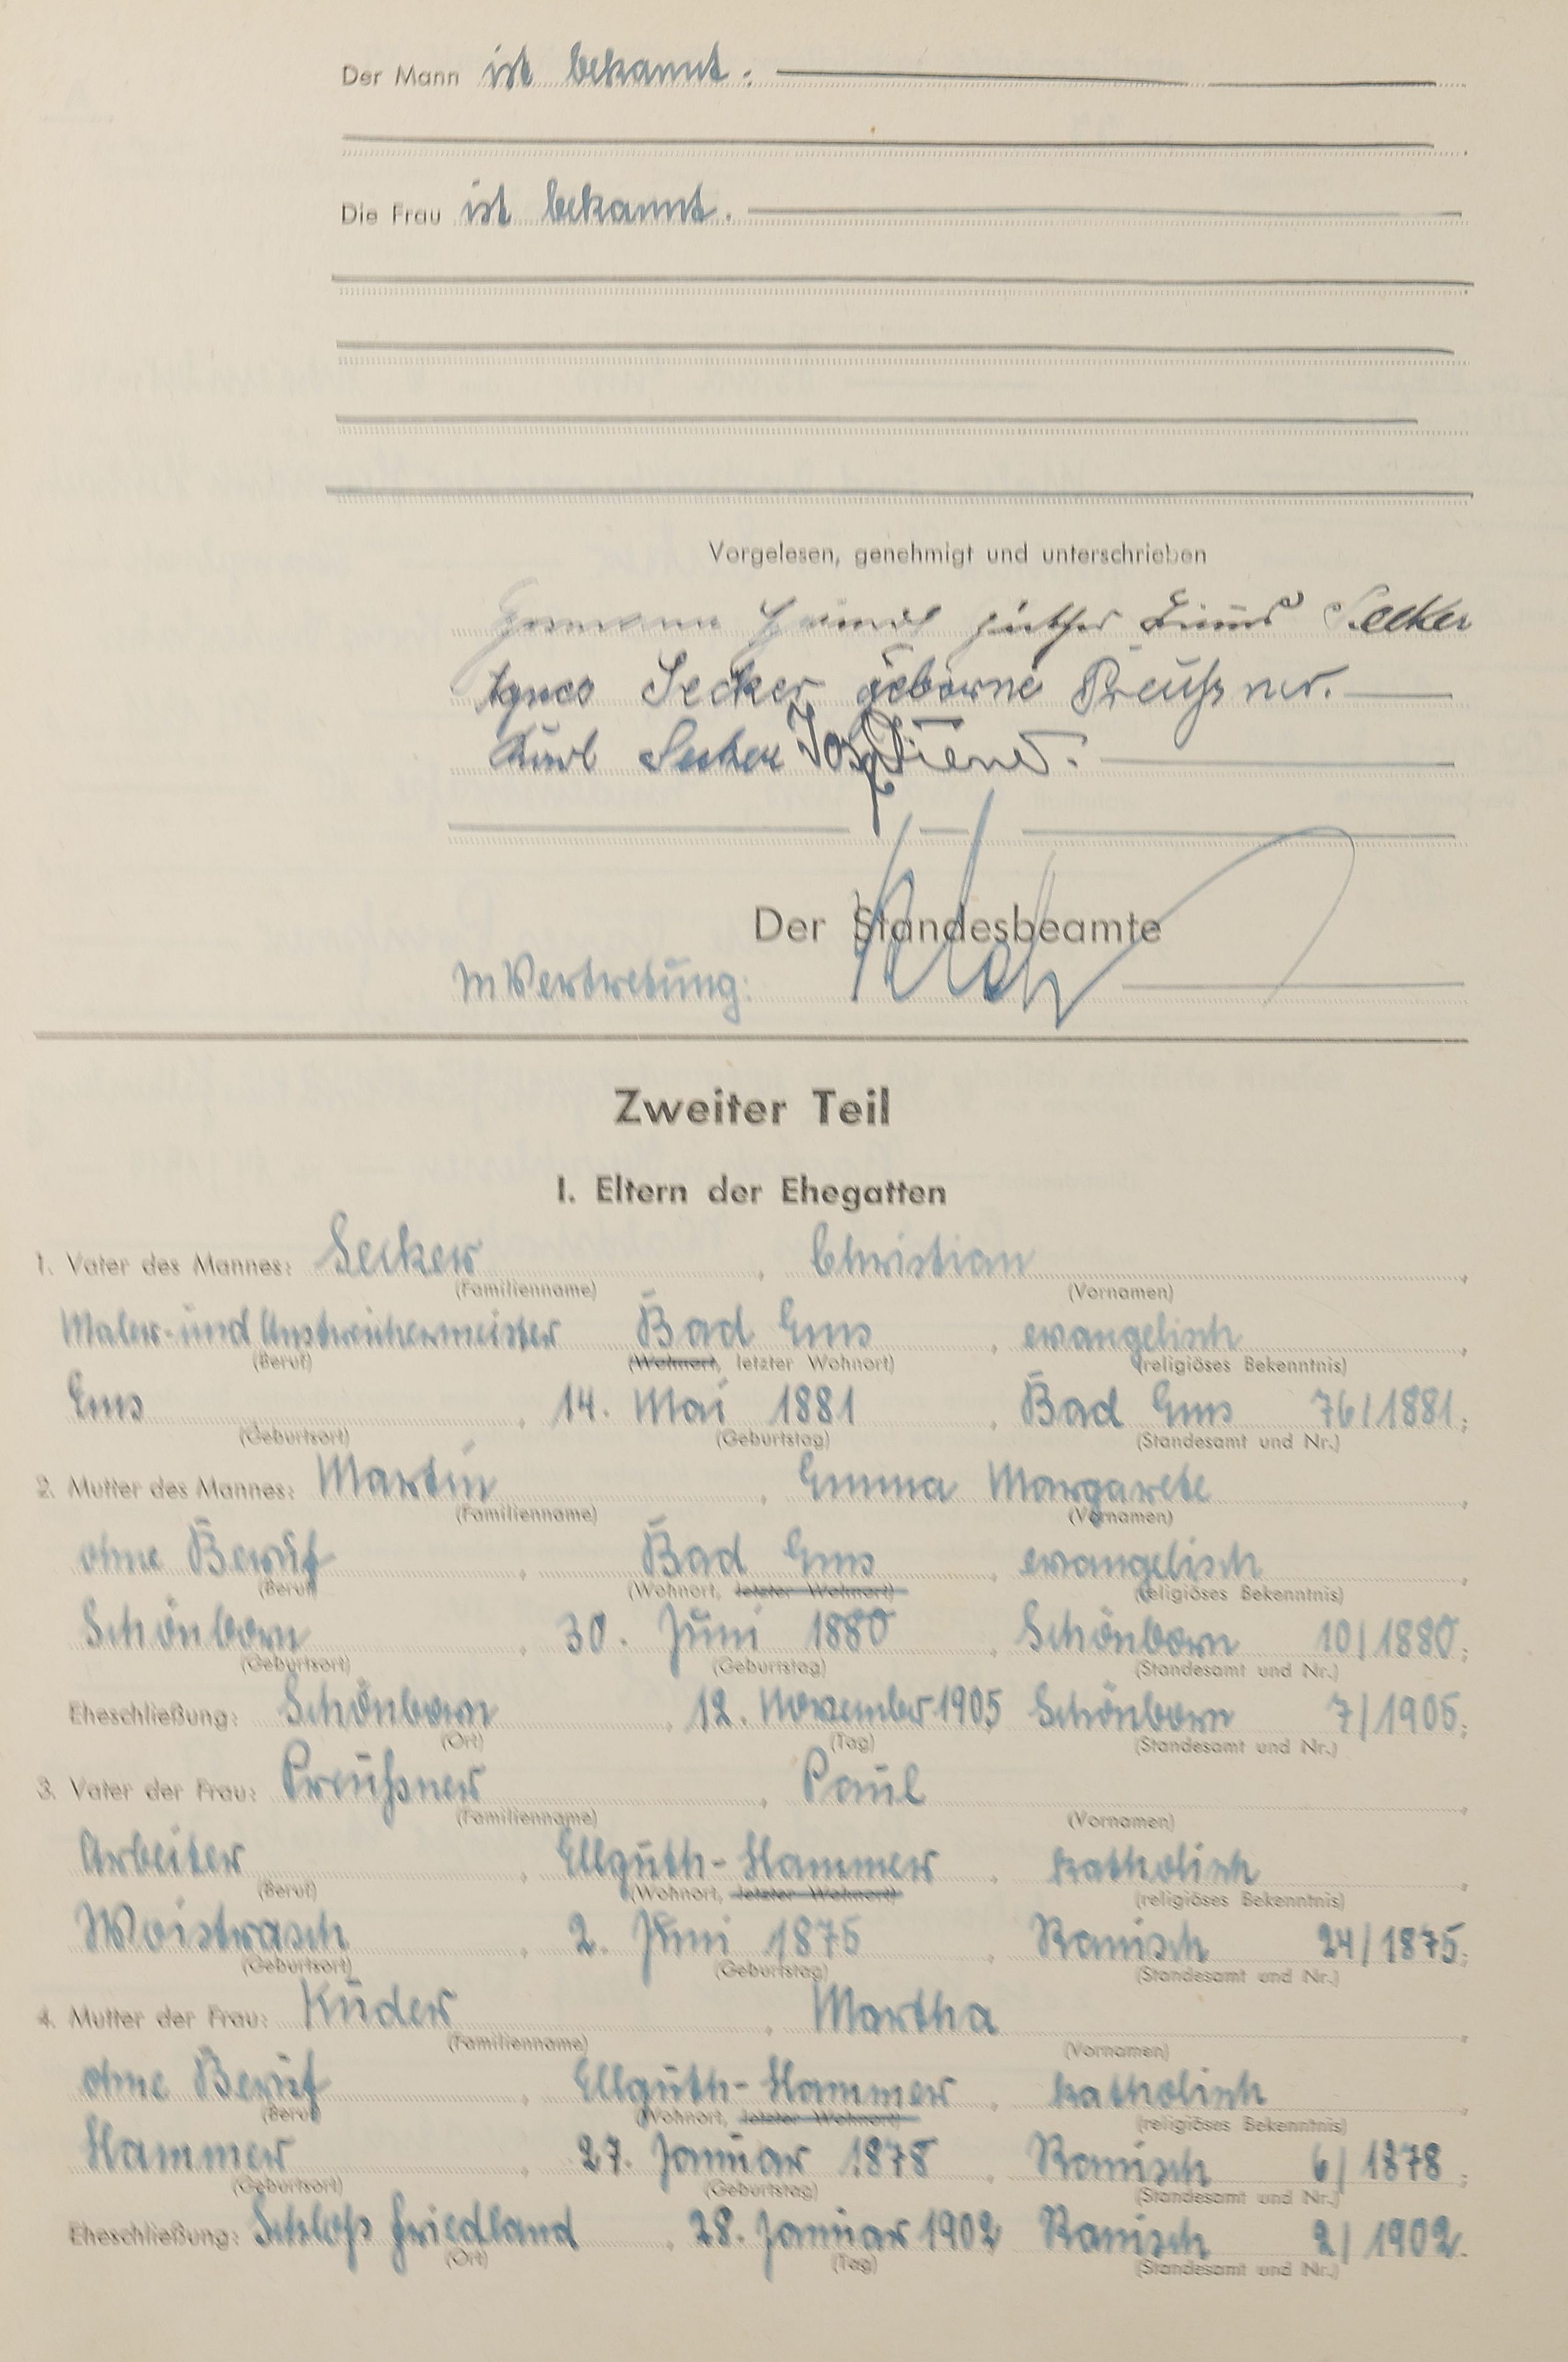 Der Mann ist bekannt.
Die Frau ist bekannt.
Vorgelesen, genehmigt und unterschrieben
Hermann Secker
Agnes Secker geborene Preußner.
Karl Secker Jos.
Der Standesbeamte
In Vertretung:
Zweiter Teil
I. Eltern der Ehegatten
1. Vater des Mannes: Secker, Christian,
(Familienname) (Vornamen)
Maler- und Anstreichermeister Bad Ems, evangelisch,
(Beruf) (Wohnort, letzter Wohnort) (religiöses Bekenntnis)
Ems, 14. Mai 1881, Bad Ems 76/1881;
(Geburtsort) (Geburtstag) (Standesamt und Nr.)
2. Mutter des Mannes: Martin, Emma Margarete,
(Familienname) (Vornamen)
ohne Beruf, Bad Ems, evangelisch,
(Beruf) (Wohnort, letzter Wohnort) (religiöses Bekenntnis)
Schönborn, 30. Juni 1880, Schönborn 10/1880;
(Geburtsort) (Geburtstag) (Standesamt und Nr.)
Eheschließung: Schönborn, 12. November 1905 Schönborn 7/1905;
(Ort) (Tag) (Standesamt und Nr.)
3. Vater der Frau: Preußner, Paul,
(Familienname) (Vornamen)
Arbeiter, Ellguth-Hammer, katholisch,
(Beruf) (Wohnort, letzter Wohnort) (religiöses Bekenntnis)
Woistrasch, 2. Juni 1875, Ranisch 24/1875;
(Geburtsort) (Geburtstag) (Standesamt und Nr.)
4. Mutter der Frau: Kuder, Martha,
(Familienname) (Vornamen)
ohne Beruf, Ellguth-Hammer, katholisch,
(Beruf) (Wohnort, letzter Wohnort) (religiöses Bekenntnis)
Hammer, 27. Januar 1878, Ranisch 6/1878;
(Geburtsort) (Geburtstag) (Standesamt und Nr.)
Eheschließung: Schloß Friedland, 28. Januar 1902 Ranisch 2/1902.
(Ort) (Tag) (Standesamt und Nr.)